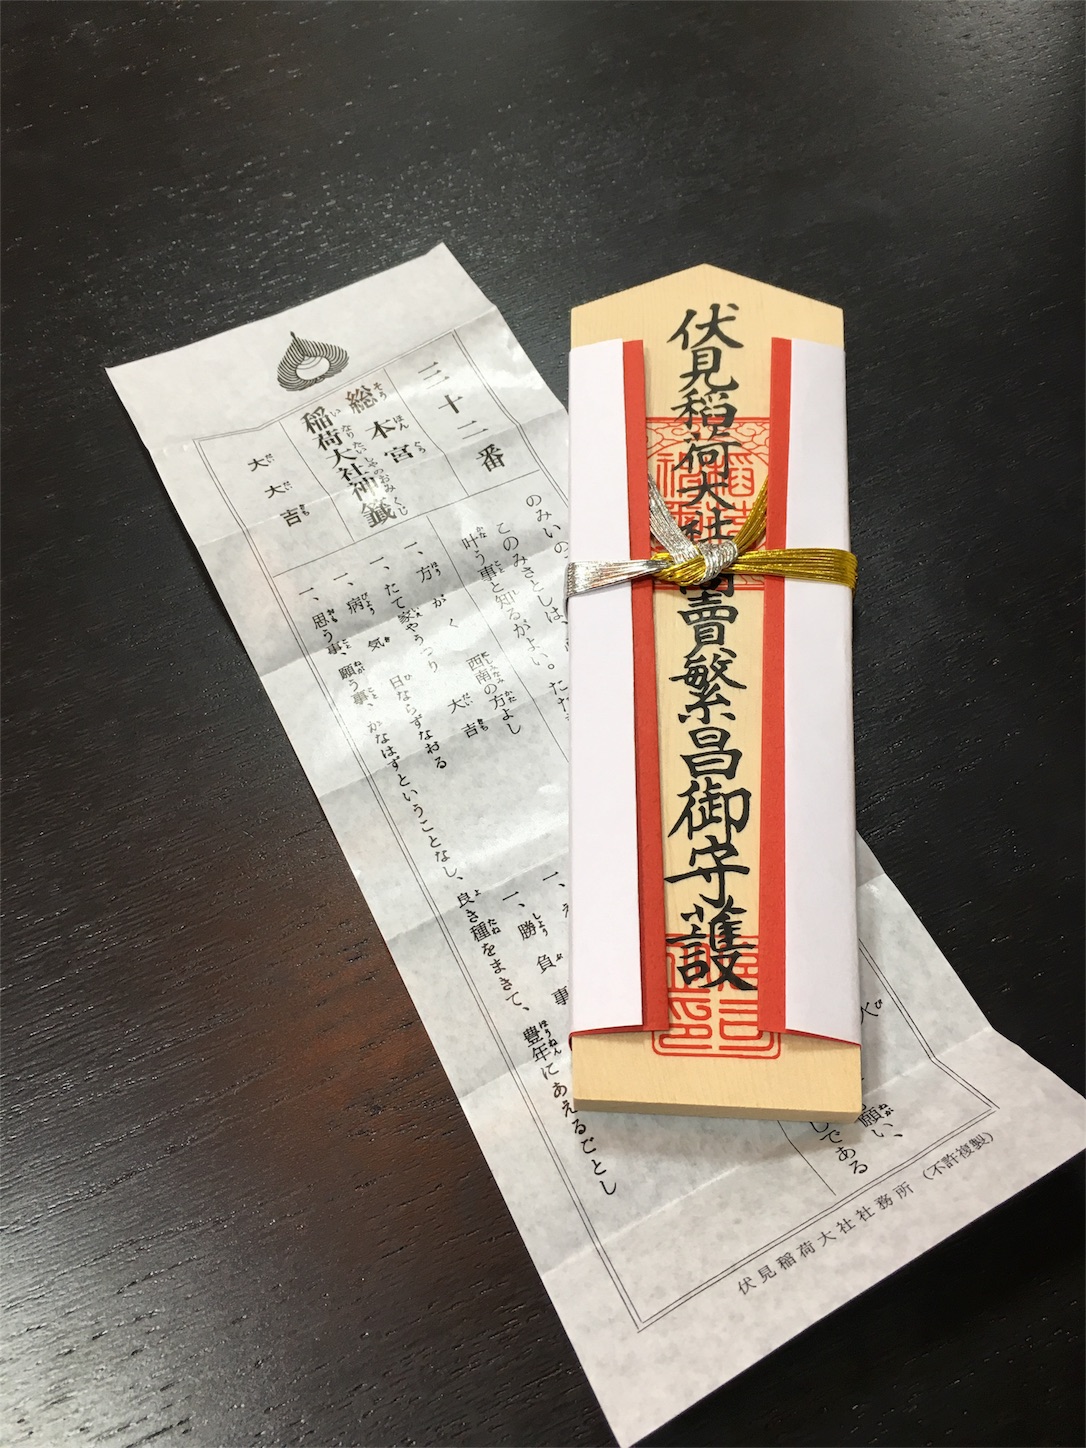 伏見稲荷大社商賣繁昌御守護
三十二番
総本宮
稲荷大社神籤
大大吉
のみいの
このみさとしは、
叶う事と知るがよい。ただ
願い、
しである
一、方がく 西南の方よし
一、たて家やうつり 大吉
一、病気 日ならずなおる
一、勝負事
一、思う事、願う事、かなはずということなし、良き種をまきて、豊年にあえるごとし
伏見稲荷大社社務所(不許複製)